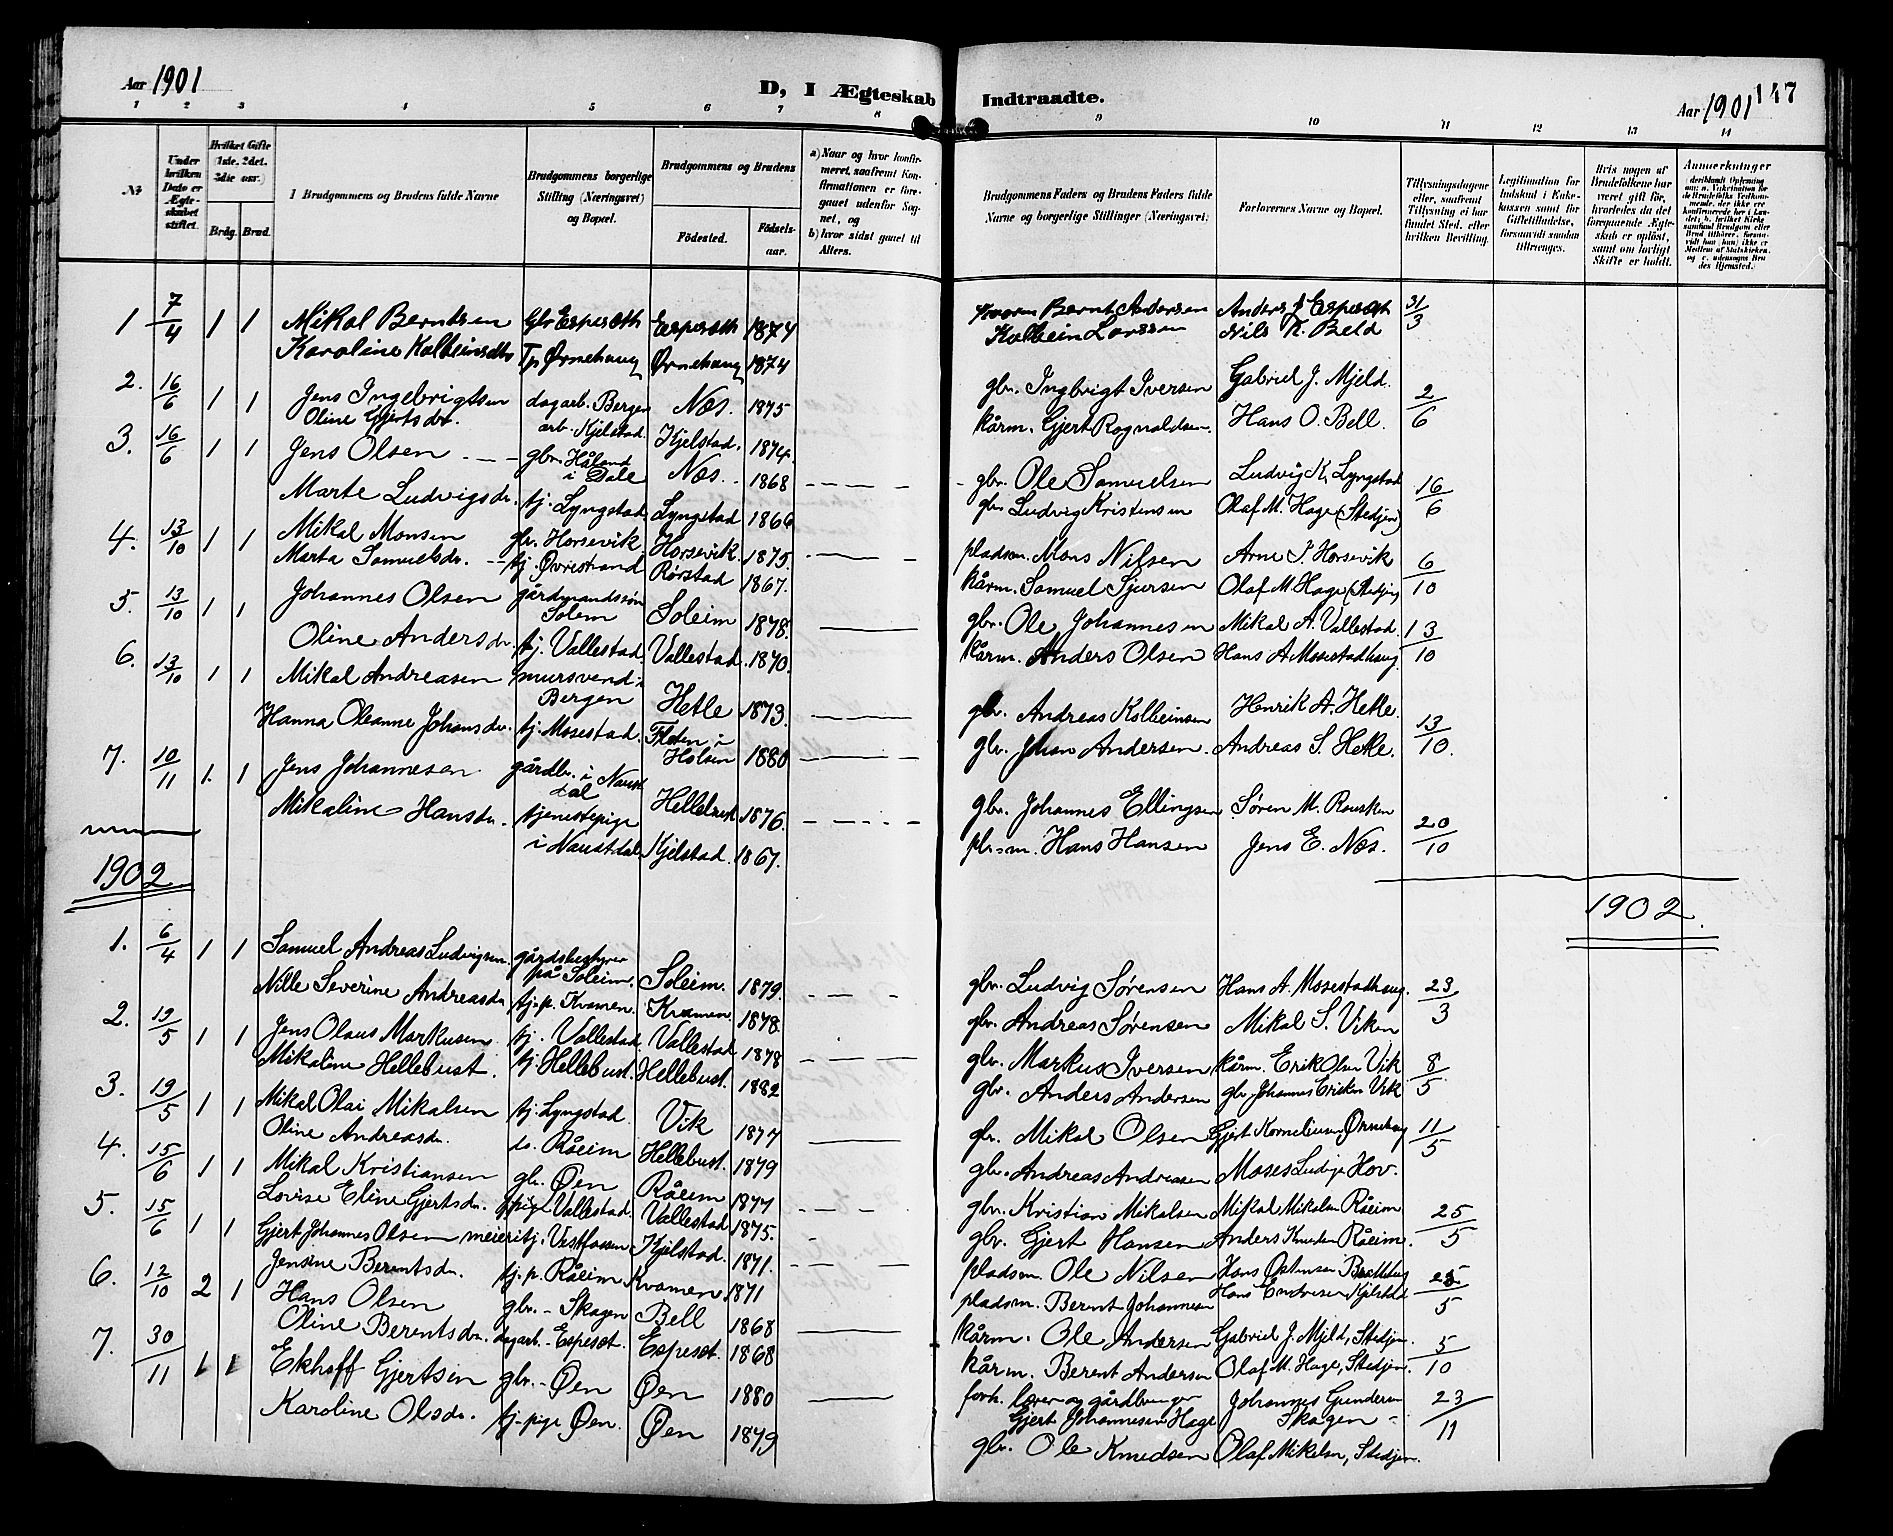 Aar 1901
D, I Ægteskab Indtraadte.
Aar 1901
147
1 2 3 4 5 6 7 8 9 10 11 12 13 14
No
Under hvilken Dato er Ægteskabet stiftet.
Hvilket Gifte (1ste, 2det, 3die osv.)
Brdg. Brud.
1 Brudgommens og Brudens fulde Navne
Brudgommens borgerlige Stilling (Næringsvei) og Bopæl.
Brudgommens og Brudens
Fødested.
Fødselsaar.
a) Naar og hvor konfirmeret, saafremt Konfirmationen er foregaaet udenfor Sognet, og
b) hvor sidst gaaet til Alters.
Brudgommens Faders og Brudens Faders fulde Navne og borgerlige Stillinger (Næringsvei)
Forlovernes Navne og Bopæl.
Tillysningsdagene eller, saafremt Tillysning ei har fundet Sted, efter hvilken Bevilling.
Legitimation for Indskud i Enkekassen samt for Giftetilladelse, forsaavidt saadan tiltrænges.
Hvis nogen af Brudefolkene har været gift før, hvorledes da det foregaaende Ægteskab er opløst, samt om lovligt Skifte er holdt.
Anmærkninger
1 7/4 1 1 Mikal Berntsen Gbr Espeseth Espeseth 1874 Bernt Andersen Anders J Espeseth 31/3
Karoline Kolbeinsdtr Tp Ørnehaug Ørnehaug 1874 Kolbein Larssen Nils K. Beld
2. 16/6 1 1 Jens Ingebrigtsen dagarb. Bergen Næs. 1875 gbr. Ingbrigt Iversen Gabriel J. Mjeld. 2/6
Oline Gjertsdtr. arb. Kjelstad Kjelstad. 1874. kårm. Gjert Rognaldsen. Hans O. Bell.
3. 16/6 1 1 Jens Olsen gbr. Håland i Dale Næs. 1868 gbr. Ole Samuelsen Ludvig K. Lyngstad 16/6
Marte Ludvigsdr. tj. Lyngstad Lyngstad 1866 gbr. Ludvig Kristensen Olaf M. Hage (Stedjen)
4. 13/10 1 1 Mikal Monsen gbr. Horsevik Horsevik 1875. pladsm. Mons Nilsen Arne P. Horsevik 6/10
Marta Samuelsdr. tj. Øvrestrand Rørstad 1867. kårm. Samuel Sjursen Olaf M. Hage (Stedjen)
5. 13/10 1 1 Johannes Olsen gårdmandssøn Solem Soleim 1878. gbr. Ole Johannesen Mikal A. Vallestad. 13/10
Oline Andersdr. tj. Vallestad. Vallestad. 1870. kårm. Anders Olsen Hans A Mosestadhaug.
6. 13/10 1 1 Mikal Andreasen mursvend i Bergen Hetle 1873. gbr. Andreas Kolbeinsen Henrik A. Hetle. 13/10.
Hanna Oleanne Johansdr. tj. Mosestad. Floten i Holsen 1880 gbr. Johan Andersen. Andreas S. Hetle.
7. 10/11 1. 1 Jens Johannesen gårdbr. i Naustdal Hellebust 1876. gbr. Johannes Ellingsen Søren M. Rousken 20/10
Mikaline Hansdr. tjenestepige i Naustdal Kjelstad. 1867. pl.m. Hans Hansen Jens E. Næs.
1902
1902.
1. 6/4 1 1 Samuel Andreas Ludvigsen. gårdsbestyrer på Soleim. Soleim. 1879. gbr. Ludvig Sørensen Hans A. Mosestadhaug. 23/3
Nille Severine Andreasdr. tj.p. Kvamen. Kvamen. 1878. gbr. Andreas Sørensen Mikal S. Viken
2. 19/5 1 1 Jens Olaus Markusen tj. Vallestad Vallestad 1878 gbr. Markus Iversen kårm. Erik Olsen Vik 8/5
Mikaline Hellebust. tj. Hellebust. Hellebust. 1882 gbr. Anders Andersen gbr. Johannes Eriksen Vik
3. 19/5 1 1 Mikal Olai Mikalsen tj. Lyngstad Vik 1877 gbr. Mikal Olsen Gjert Korneliusen Ørnehaug 11/5
Oline Andreasdr. do. Råeim Hellebust. 1879 gbr. Andreas Andreasen Moses Hov.
4. 15/6 1 1 Mikal Kristiansen gbr. Øen Råeim 1877 gbr. Kristian Mikalsen Mikal Mikalsen Råeim 25/5
Lovise Eline Gjertsdr. Vallestad. Vallestad 1875. gbr. Gjert Hansen Anders Knudsen Råeim.
5. 15/6 1 1 Gjert Johannes Olsen meieritj. Vestfossen Kjelstad. 1871. pladsm. Ole Nilsen Hans Østensen 25/5
Jensine Berentsdr. tj.p. Råeim Kvamen. 1871 pladsm. Berent Johannesen Hans Endresen Kjelstad
6. 12/10 2 1 Hans Olsen gbr. - Skagen Bell 1868 kårm. Ole Andersen Gabriel J. Mjeld, Stedjen. 5/10
Oline Berentsdr. dagarb. Espeset. Espeset. 1868 kårm. Berent Andersen Olaf M. Hage, Stedjen.
7. 30/11 1 1 Ekhoff Gjertsen gbr. - Øen Øen 1880 forh. lærer og gårdbruger Gjert Johannesen Hage Johannes Gundersen Skagen 23/11
Karoline Olsdr. tj.pige Øen. Øen 1879 gbr. Ole Knudsen Olaf Mikelsen, Stedjen.